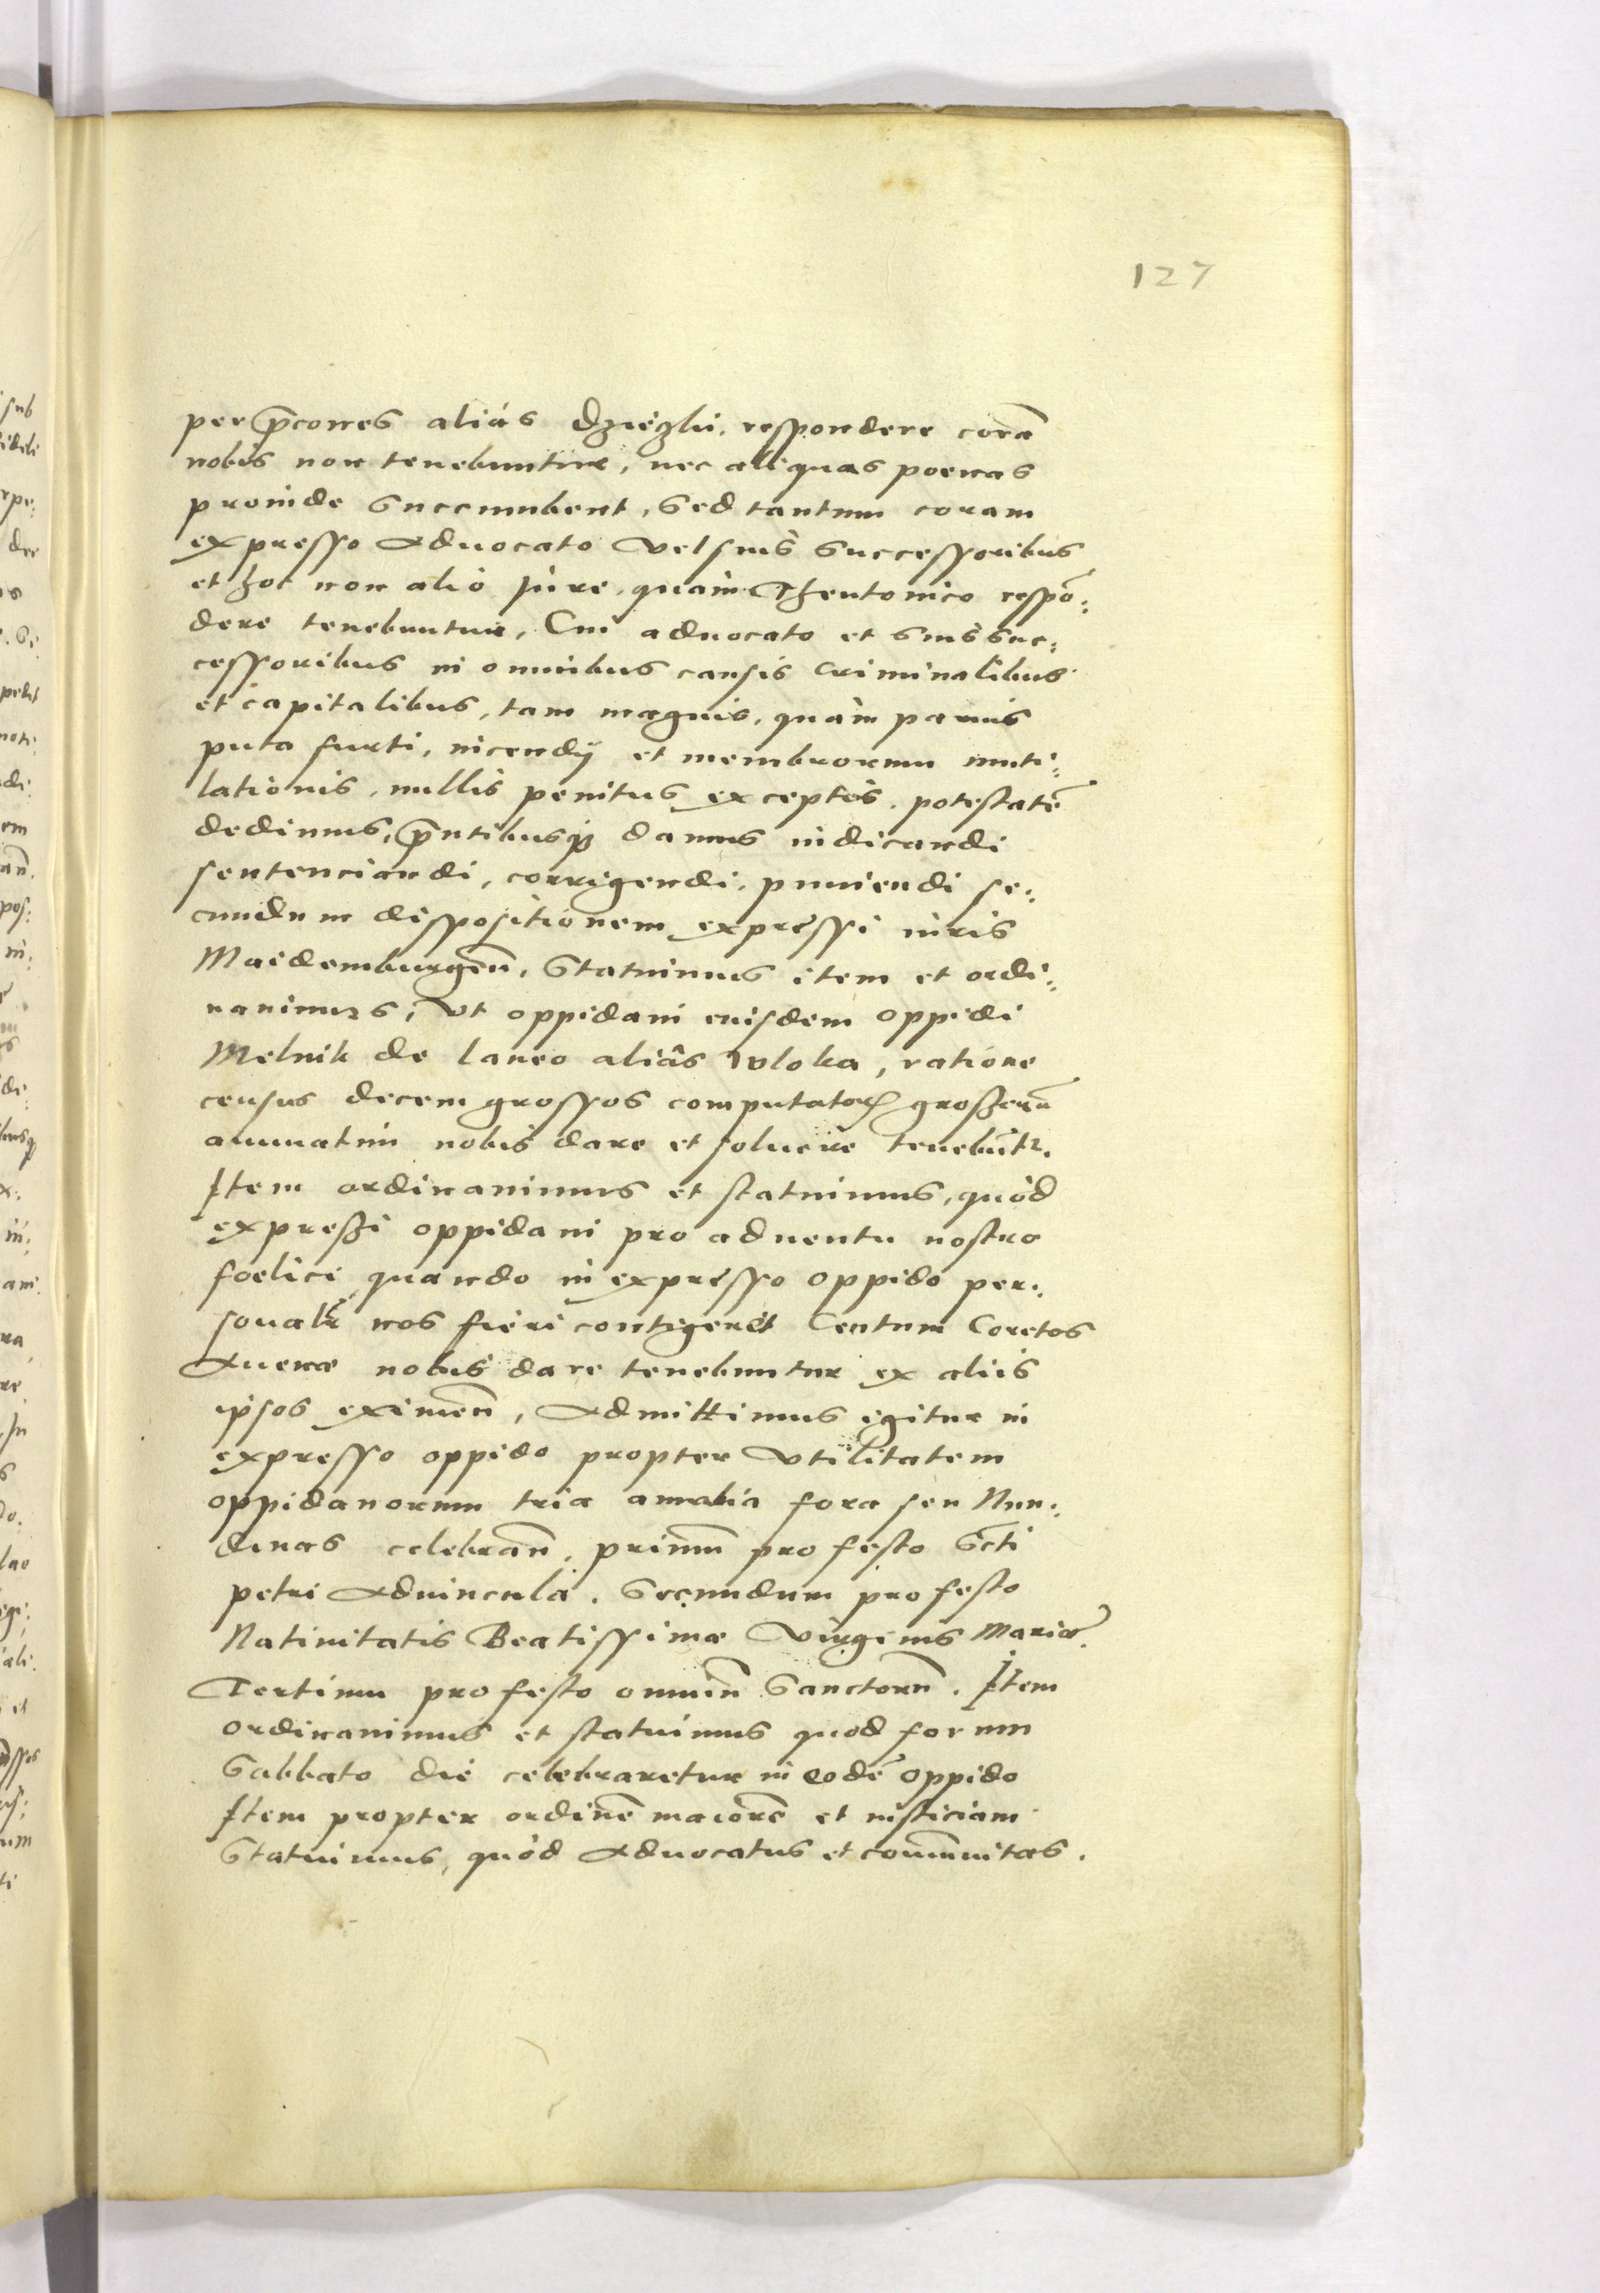 127
per p̄cones aliàs dzięzki, respondere corā
nobis non tenebuntur, nec aliquas poenas
proinde succumbent, sed tantum coram
expresso Aduocato vel suis successoribus
et hoc non alio Jure, quàm Theutonico respō:
dere tenebuntur, Cui aduocato et suis suc:
cessoribus in omnibus causis Criminalibus
et capitalibus, tam magnis, quàm paruis
puta furti, incendij et membrorum muti:
lationis, nullis penitus exceptis, potestatē
dedimus, p̄ntibusq₃ damus iudicandi
sentenciandi, corrigendi, puniendi se:
cundum dispositionem expressi iuris
Maidemburgeñ, Statuimus item et ordi:
nauimus, Vt oppidani eiusdem oppidi
Melnik de laneo aliàs wloka, ratione
census decem grossos computatorꝫ groszerū
annuatim nobis dare et soluere tenebūtr.
Item ordinauimus et statuimus, quòd
expreszi oppidani pro aduentu nostro
foelici quando in expresso oppido per:
sonalr̃ nos fieri contigerit Centum Coretos
Auenæ nobis dare tenebuntur ex aliis
ipsos eximeñ, Admittimus igitur in
expresso oppido propter Vtilitatem
oppidanorum tria annalia fora seu Nun:
dinas celebrañ, primū pro festo Scti
petri Aduincula. Secundum pro festo
Natiuitatis Beatissimæ Virginis Mariæ.
Tertium pro festo omniū Sanctorū. Item
ordinauimus et statuimus quod forum
Sabbato die celebraretur in eodē oppido
Item propter ordinē maiorē et iusticiam
Statuimus, quòd Aduocatus et com̄unitas.